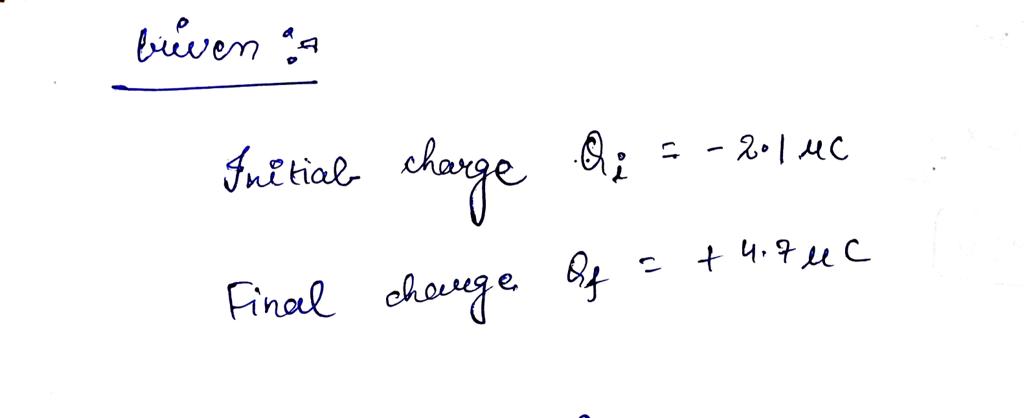 Given :→
Initial charge Qi = - 2.1 μC
Final charge Qf = + 4.7 μC